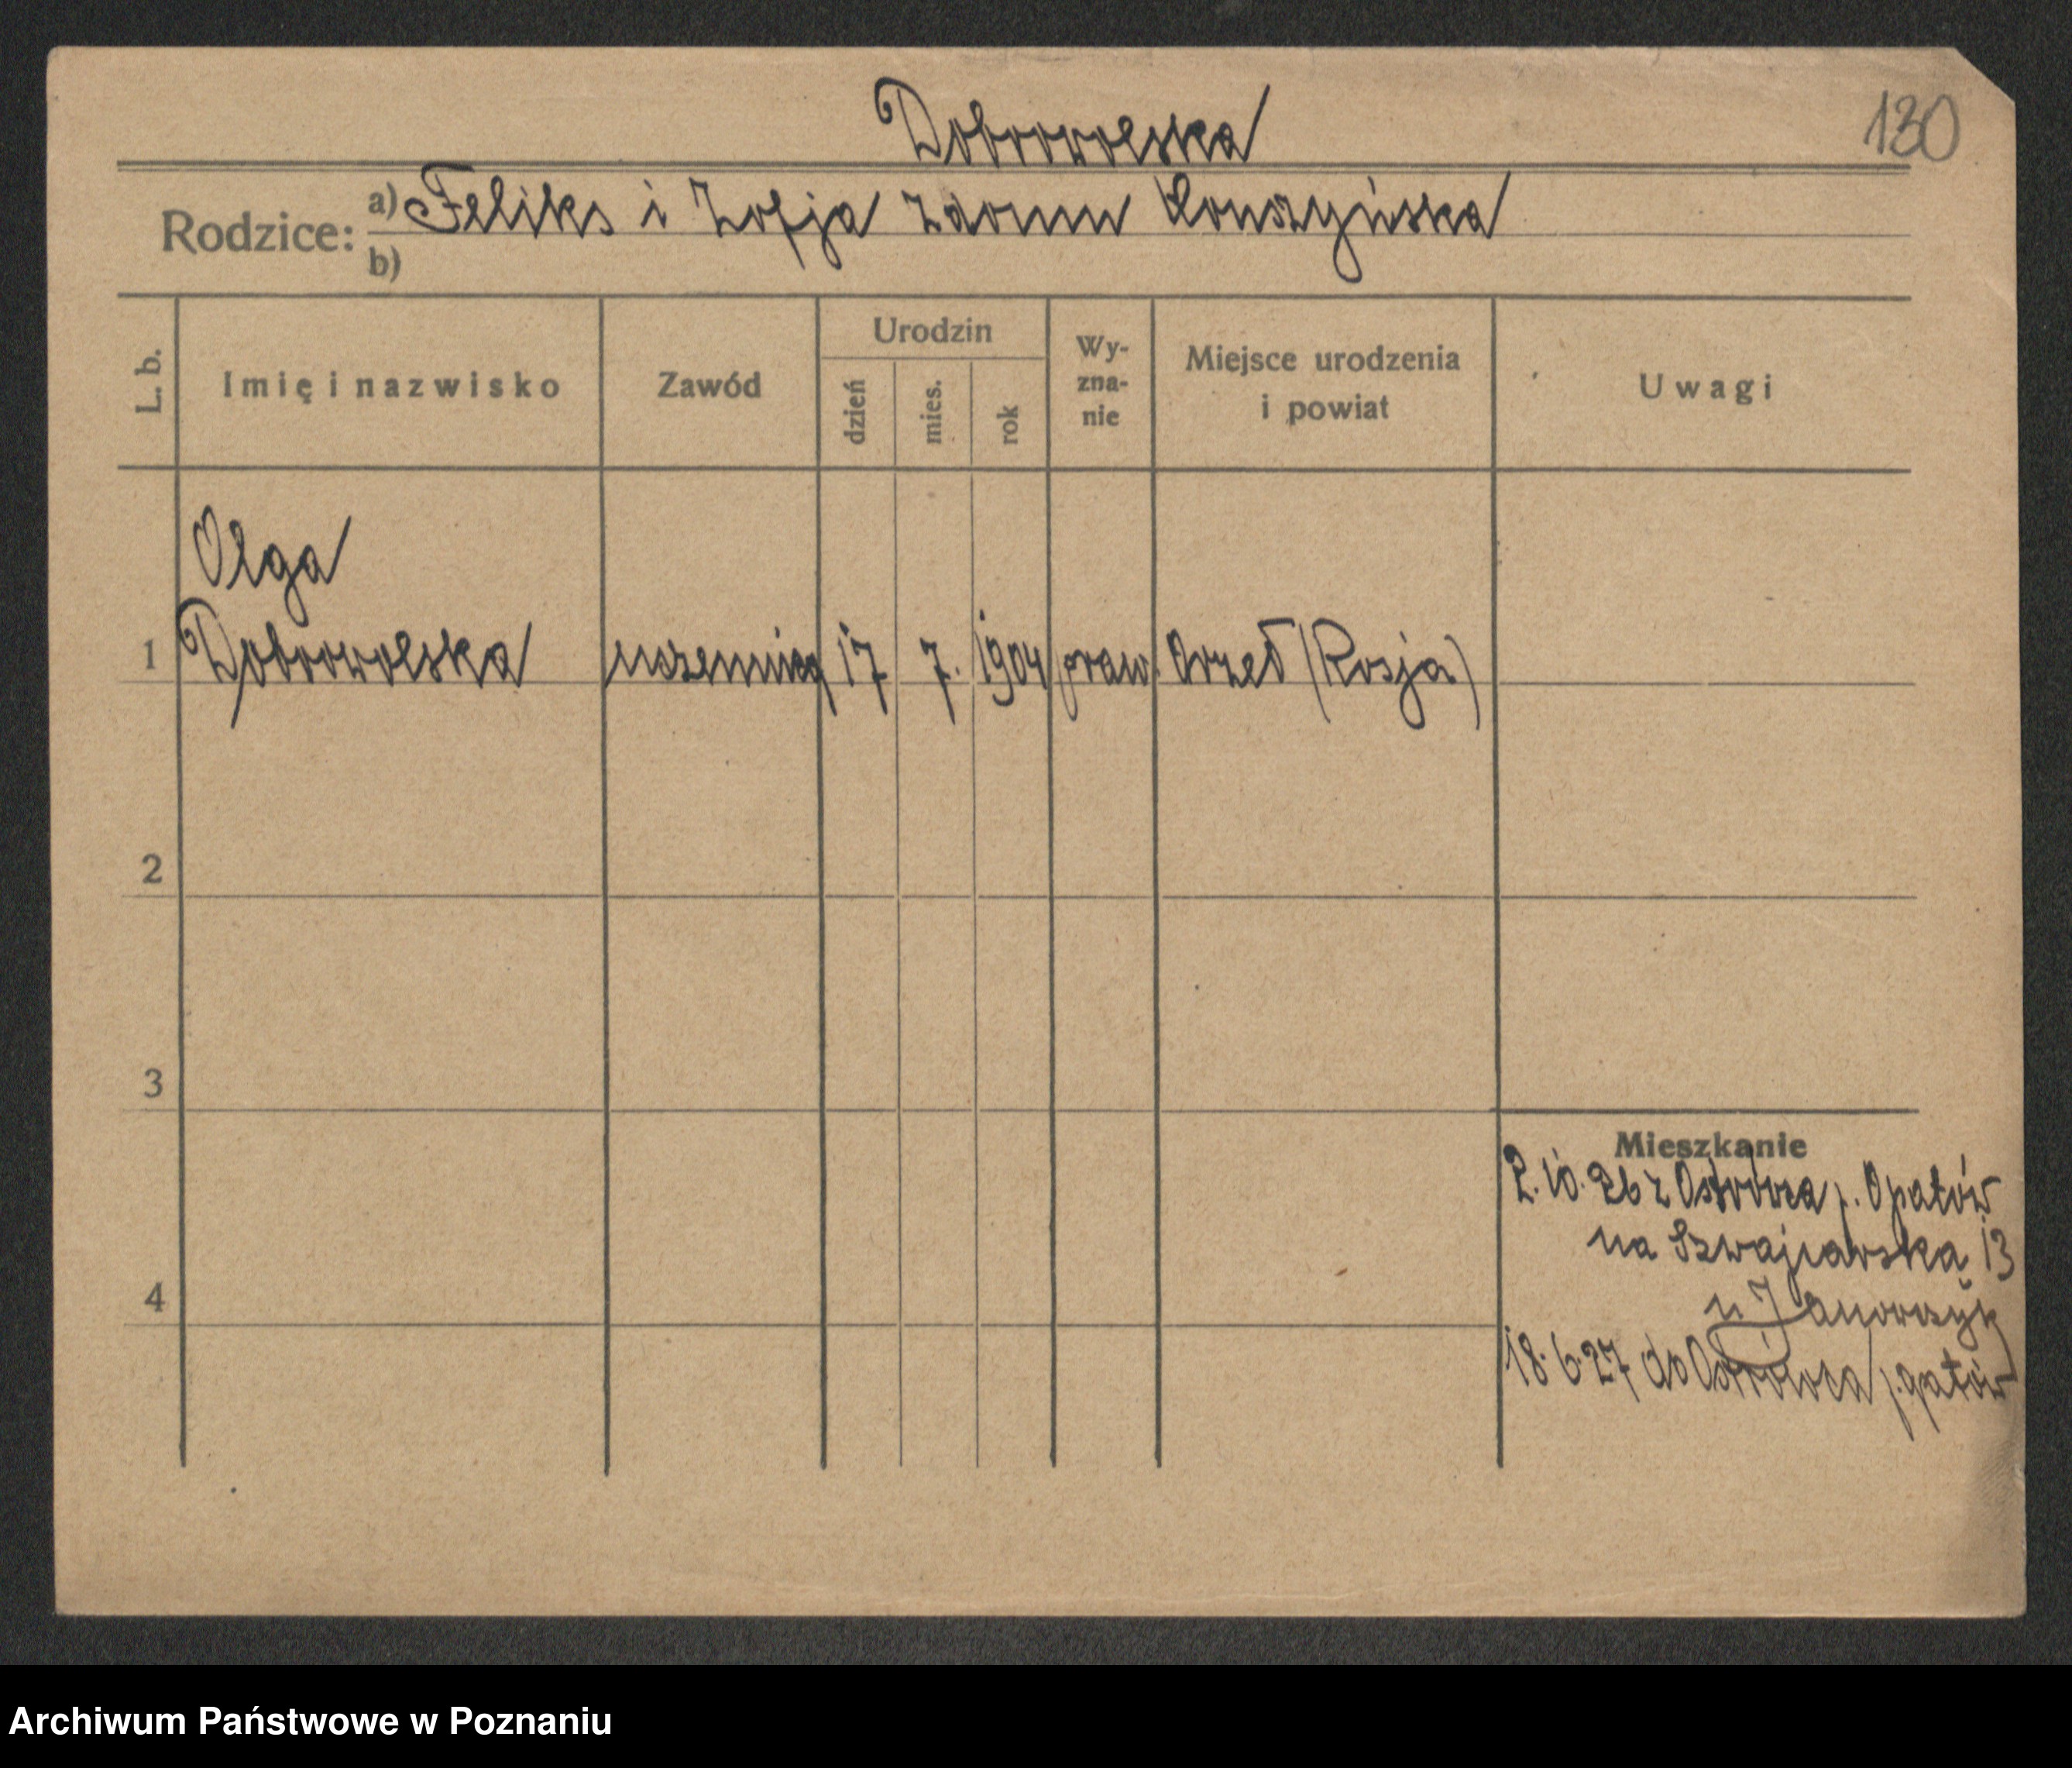 Dobrowolska
130
Rodzice: a) Feliks i Zofja z domu
b)
L. b. Imię i nazwisko Zawód Urodzin dzień mies. rok Wy-zna-nie Miejsce urodzenia i powiat Uwagi
Olga
1 Dobrowolska uczennica 17 7. 1904 praw. Orzeł (Rosja)
2
3
Mieszkanie
2. 10. 26 z Ostrowca p. Opatów
na Szwajcarska 13
4
u
18. 6. 27 do Ostrowca
Archiwum Państwowe w Poznaniu